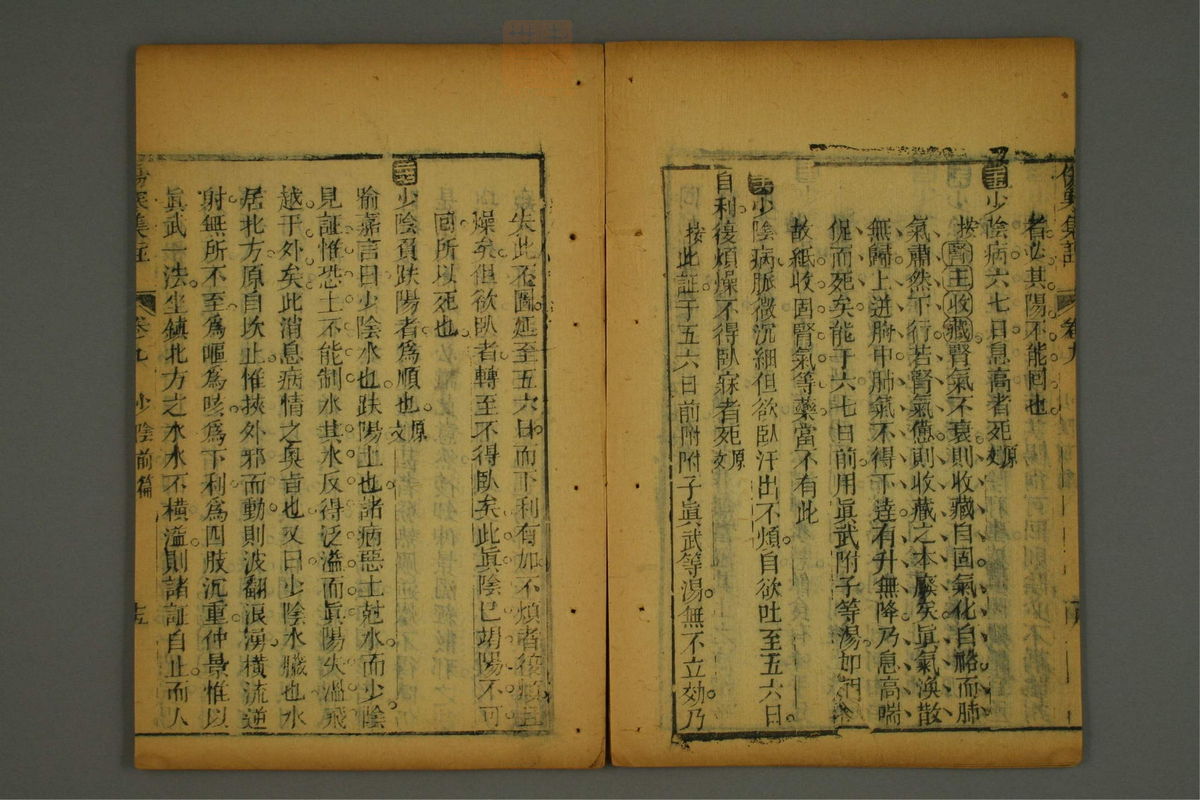 傷寒集註 卷九
者以其陽不能回也
少陰病六七日息高者死原文
按腎主收藏腎氣不衰則收藏自固氣化自豁而肺
氣肅然下行若腎氣憊則收藏之本廢矣眞氣渙散
無歸上迸胸中肺氣不得下達有升無降乃息高喘
促而死矣能于六七日前用眞武附子等湯如
故紙收固腎氣等藥當不有此
少陰病脈微沉細但欲臥汗出不煩自欲吐至五六日
自利復煩燥不得臥寐者死原文
按此証于五六日前附附子眞武等湯無不立効乃
失此不圖延至五六日而下利有加不煩者復煩且
燥矣但欲臥者轉至不得臥矣此眞陰已胡陽不可
囘所以死也
少陰負趺陽者爲順也原文
喻嘉言曰少陰水也趺陽土也諸病惡土尅水而少陰
見証惟恐土不能制水其水反得泛溢而眞陽失溫飛
越于外矣此消息病情之奧旨也又曰少陰水臟也水
居北方原自坎止惟挾外邪而動則波翻浪湧橫流逆
射無所不至爲嘔爲咳爲下利爲四肢沉重仲景惟以
眞武一法坐鎮北方之水水不橫溢則諸証自止而人
傷寒集註 卷九 少陰前篇 十五